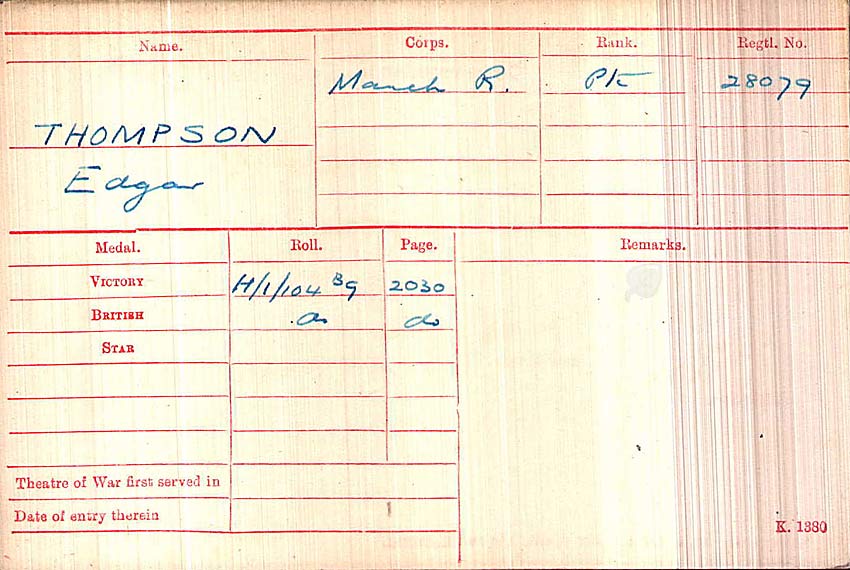 Name. Corps. Rank. Regtl. No.
Manch R. Pte 28079
THOMPSON
Edgar
Medal. Roll. Page. Remarks.
VICTORY H/1/104 B9 2030
BRITISH do do
STAR
Theatre of War first served in
Date of entry therein
K. 1380